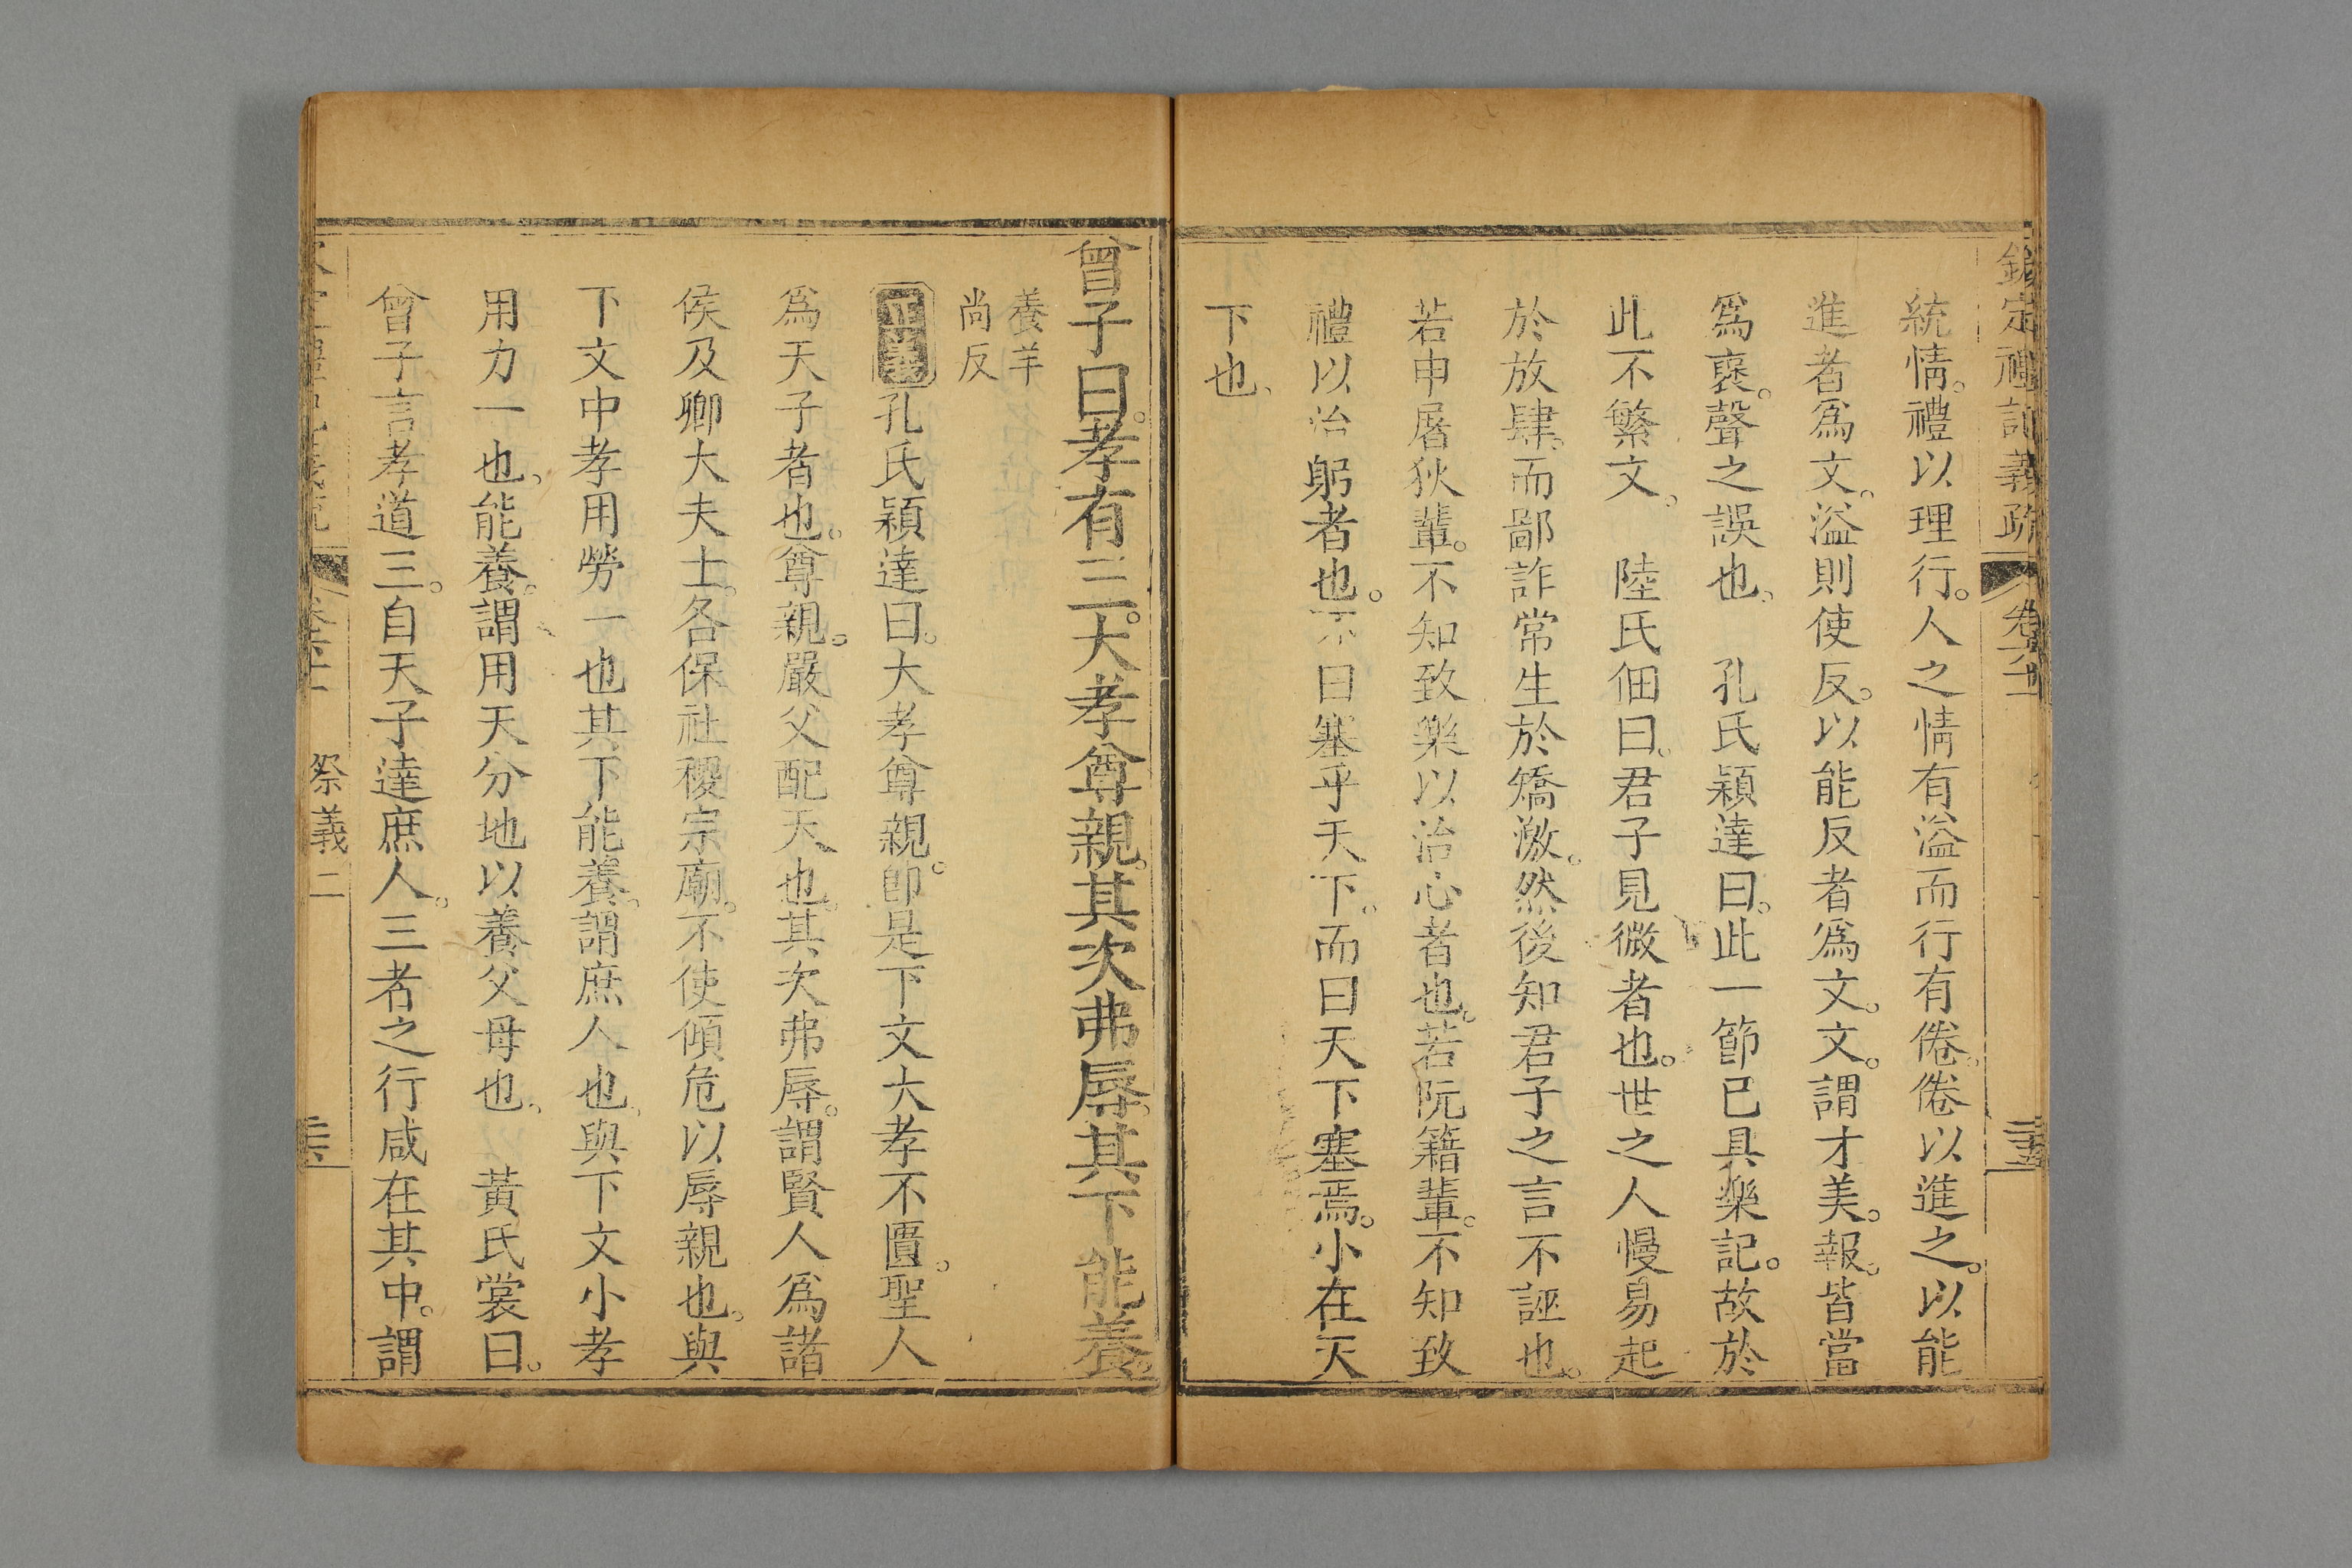 欽定禮記義疏 卷六十一 三五
統情。禮以理行。人之情有溢而行有倦。倦以進之。以能
進者爲文。溢則使反。以能反者爲文。文。謂才美。報。皆當
爲褒。聲之誤也。 孔氏穎達曰。此一節已具樂記。故於
此不繁文。 陸氏佃曰。君子見微者也。世之人慢易起
於放肆。而鄙詐常生於矯激。然後知君子之言不誣也。
若申屠狄輩。不知致樂以治心者也。若阮籍輩。不知致
禮以治躬者也。不曰塞乎天下。而曰天下塞焉。小在天
下也、
曾子曰。孝有三。大孝尊親。其次弗辱。其下能養。
養羊
尚反
正義孔氏穎達曰。大孝尊親。卽是下文大孝不匱。聖人
爲天子者也。尊親。嚴父配天也。其次弗辱。謂賢人爲諸
侯及卿大夫士。各保社稷宗廟。不使傾危以辱親也。與
下文中孝用勞一也其下能養。謂庶人也、與下文小孝
用力一也、能養。謂用天分地以養父母也、 黃氏裳曰。
曾子言孝道三。自天子達庶人。三者之行咸在其中。謂
祭義二